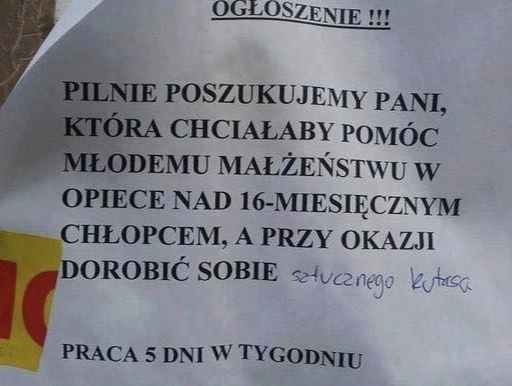 OGŁOSZENIE !!!
PILNIE POSZUKUJEMY PANI,
KTÓRA CHCIAŁABY POMÓC
MŁODEMU MAŁŻEŃSTWU W
OPIECE NAD 16-MIESIĘCZNYM
CHŁOPCEM, A PRZY OKAZJI
DOROBIĆ SOBIE sztucznego kutasa
PRACA 5 DNI W TYGODNIU